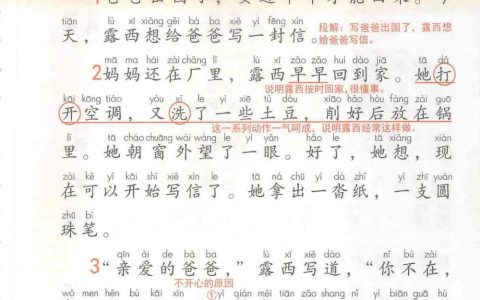 tiān lù xī xiǎng gěi bà ba xiě yì fēng xìn
天，露西想给爸爸写一封信。
段解：写爸爸出国了，露西想
给爸爸写信。
mā ma hái zài chǎng lǐ lù xī zǎo zǎo huí dào jiā tā dǎ
2妈妈还在厂里，露西早早回到家。她打
说明露西按时回家，很懂事。
kāi kōng tiáo yòu xǐ le yì xiē tǔ dòu xiāo hǎo hòu fàng zài guō
开空调，又洗了一些土豆，削好后放在锅
这一系列动作一气呵成，说明露西经常这样做。
lǐ tā cháo chuāng wài wàng le yì yǎn hǎo le tā xiǎng xiàn
里。她朝窗外望了一眼。好了，她想，现
zài kě yǐ kāi shǐ xiě xìn le tā ná chū yì dá zhǐ yì zhī yuán
在可以开始写信了。她拿出一沓纸，一支圆
zhū bǐ
珠笔。
qīn ài de bà ba lù xī xiě dào nǐ bú zài
3“亲爱的爸爸，”露西写道，“你不在，
不开心的原因
wǒ men hěn bù kāi xīn ①yǐ qián měi tiān zǎo shang nǐ yì